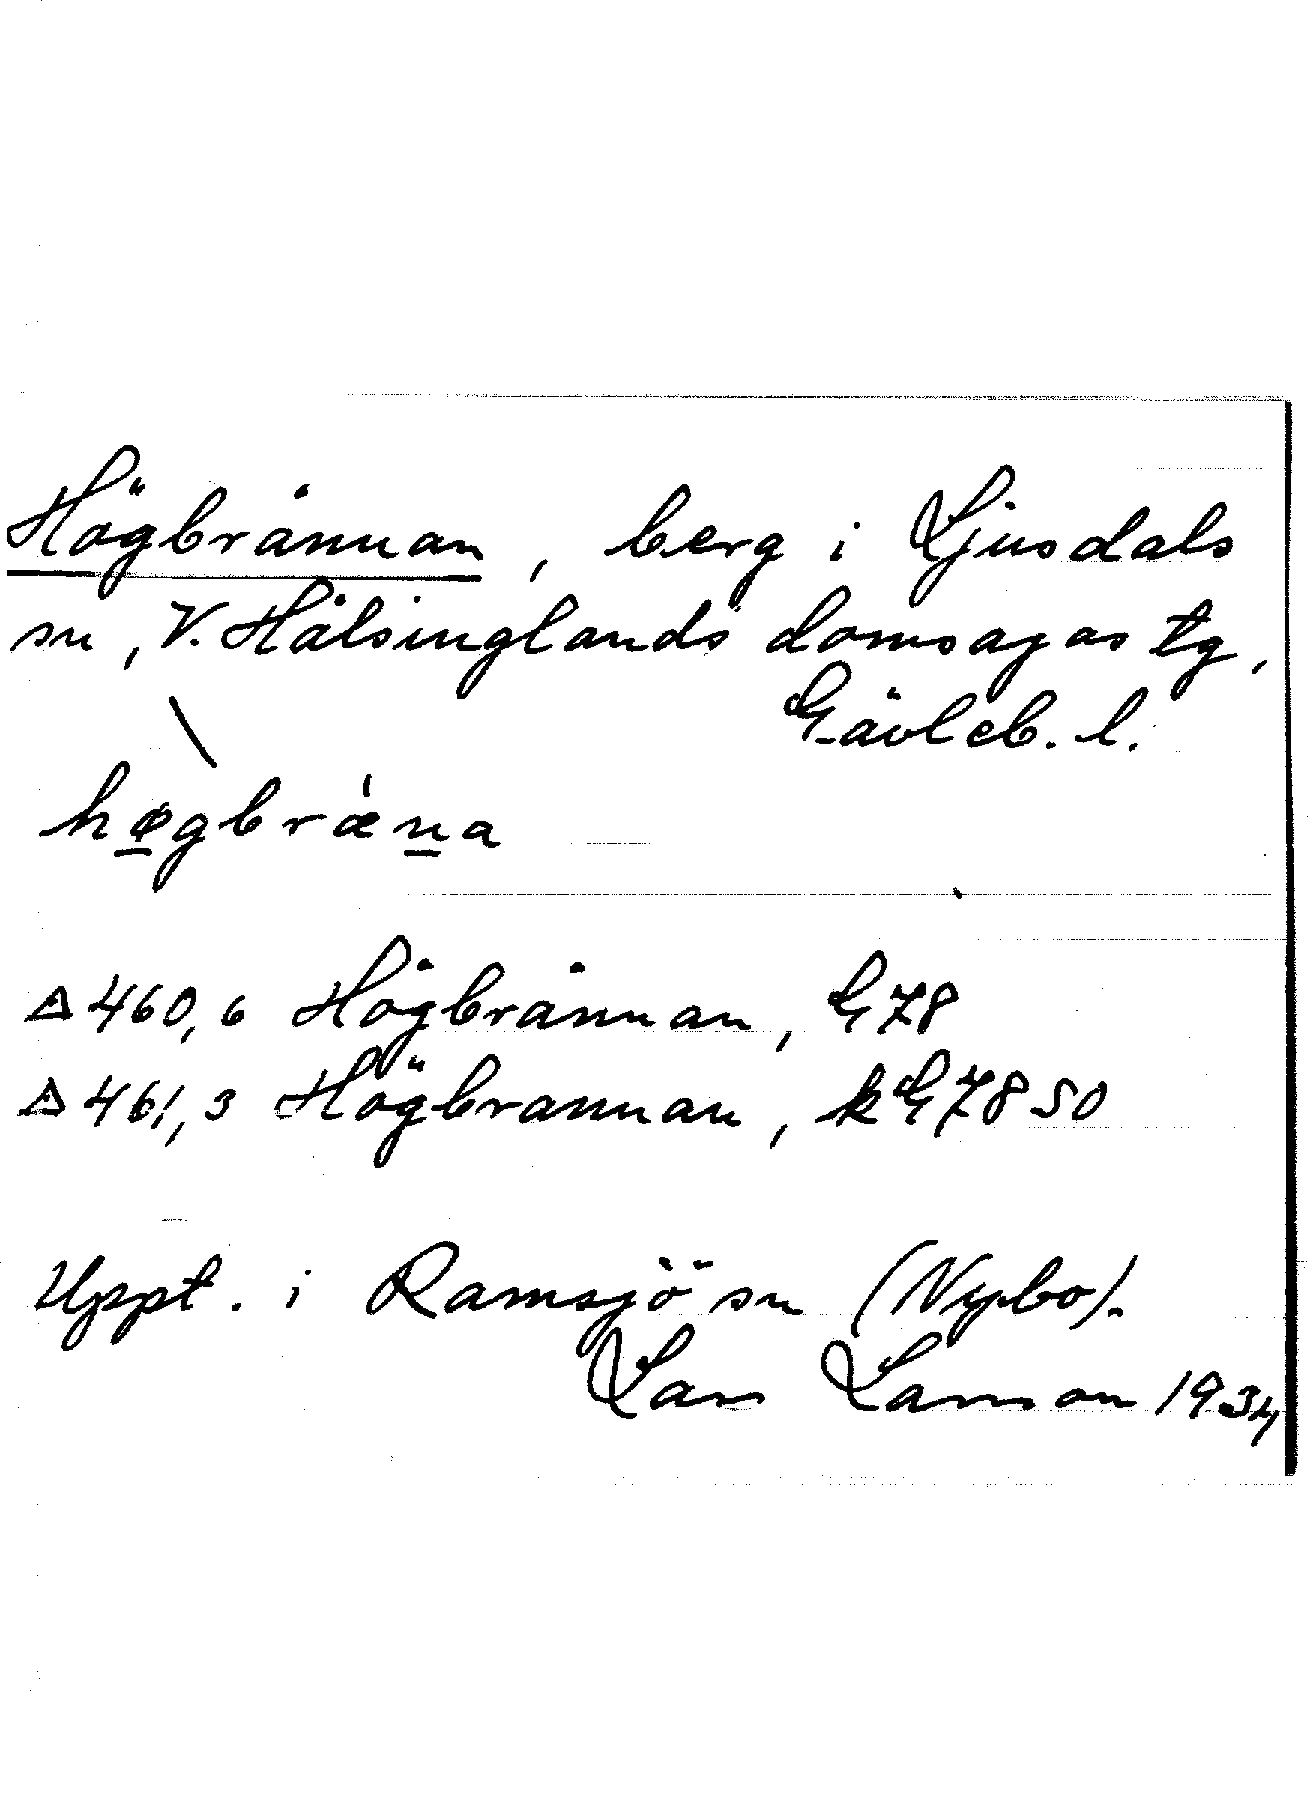 Högbrännan, berg i Ljusdals
sn, V. Hälsinglands domsagas tg,
Gävleb. l.
hø̱gbræ̀ṉa
△ 460,6 Högbrännan, G78
△ 461,3 Högbrannan, kG7850
Uppt. i Ramsjö sn (Nybo).
Lars Larsson 1934